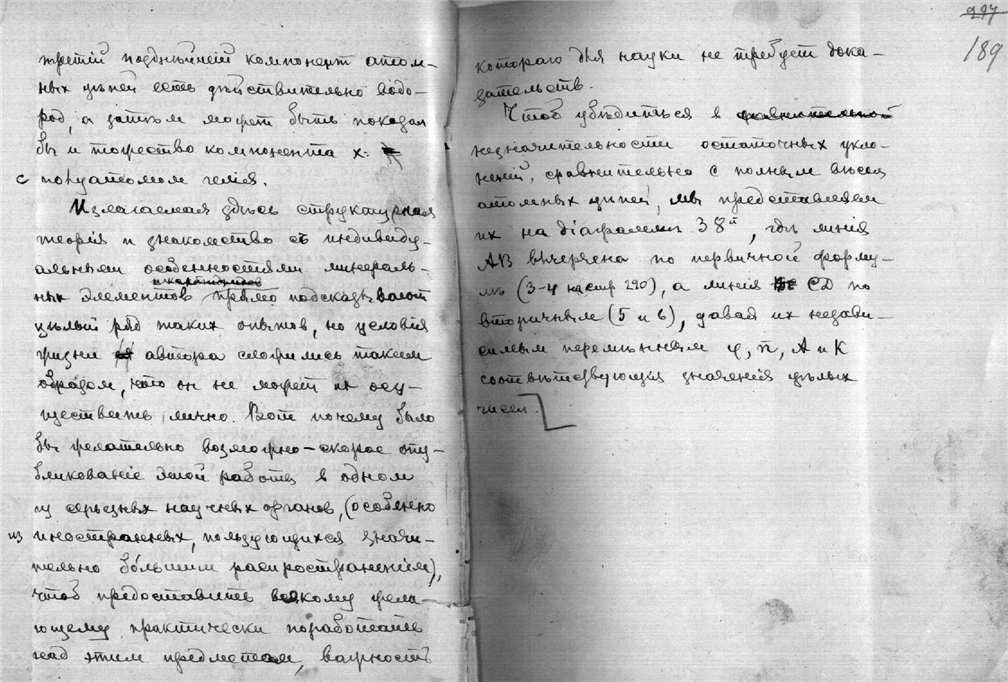 третій позднѣйшій компонент атом-
ных цѣпей есть дѣйствительно водо-
род, а затѣм может быть показан
бы и тожество компонента x
с полуатомом гелія.
Излагаемая здѣсь структурная
теорія и знакомство съ индивиду-
альными особенностями минераль-
ных элементов прямо подсказывают
цѣлый ряд таких опытов, но условія
жизни автора сложились таким
образом, что он не может их осу-
ществить лично. Вот почему было
бы желательно возможно-скорое опу-
бликованіе этой работы в одном
из серьезных научных органов, (особенно
из иностранных, пользующихся значи-
тельно бо́льшим распространеніем),
чтоб предоставить всякому жела-
ющему практически поработать
над этим предметом, важность
297
189
котораго для науки не требует дока-
зательств.
Чтоб убѣдиться в сравнительной
незначительности остаточных укло-
неній, сравнительно с полным вѣсом
атомных цѣпей, мы представляем
их на діаграммѣ 38й, гдѣ линія
АВ вычерчена по первичной форму-
лѣ (3-4 на стр 290), а линія CD по
вторичным (5 и 6), давая их незави-
симым перемѣнным φ, π, А и К
соотвѣтствующія значенія цѣлых
чисел.